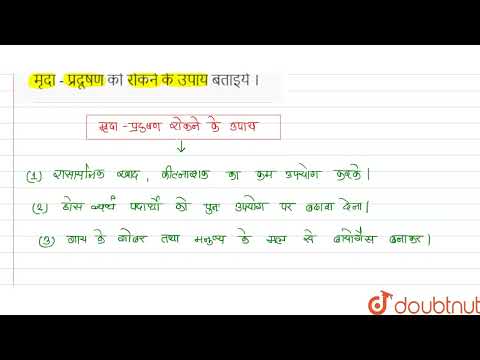 मृदा - प्रदूषण को रोकने के उपाय बताइये ।
मृदा - प्रदूषण रोकने के उपाय
(1) रासायनिक खाद, कीटनाशक का कम उपयोग करके।
(2) ठोस व्यर्थ पदार्थो को पुनः उपयोग पर बढावा देना।
(3) गाय के गोबर तथा मनुष्य के मल से बायोगैस बनाकर।
doubtnut